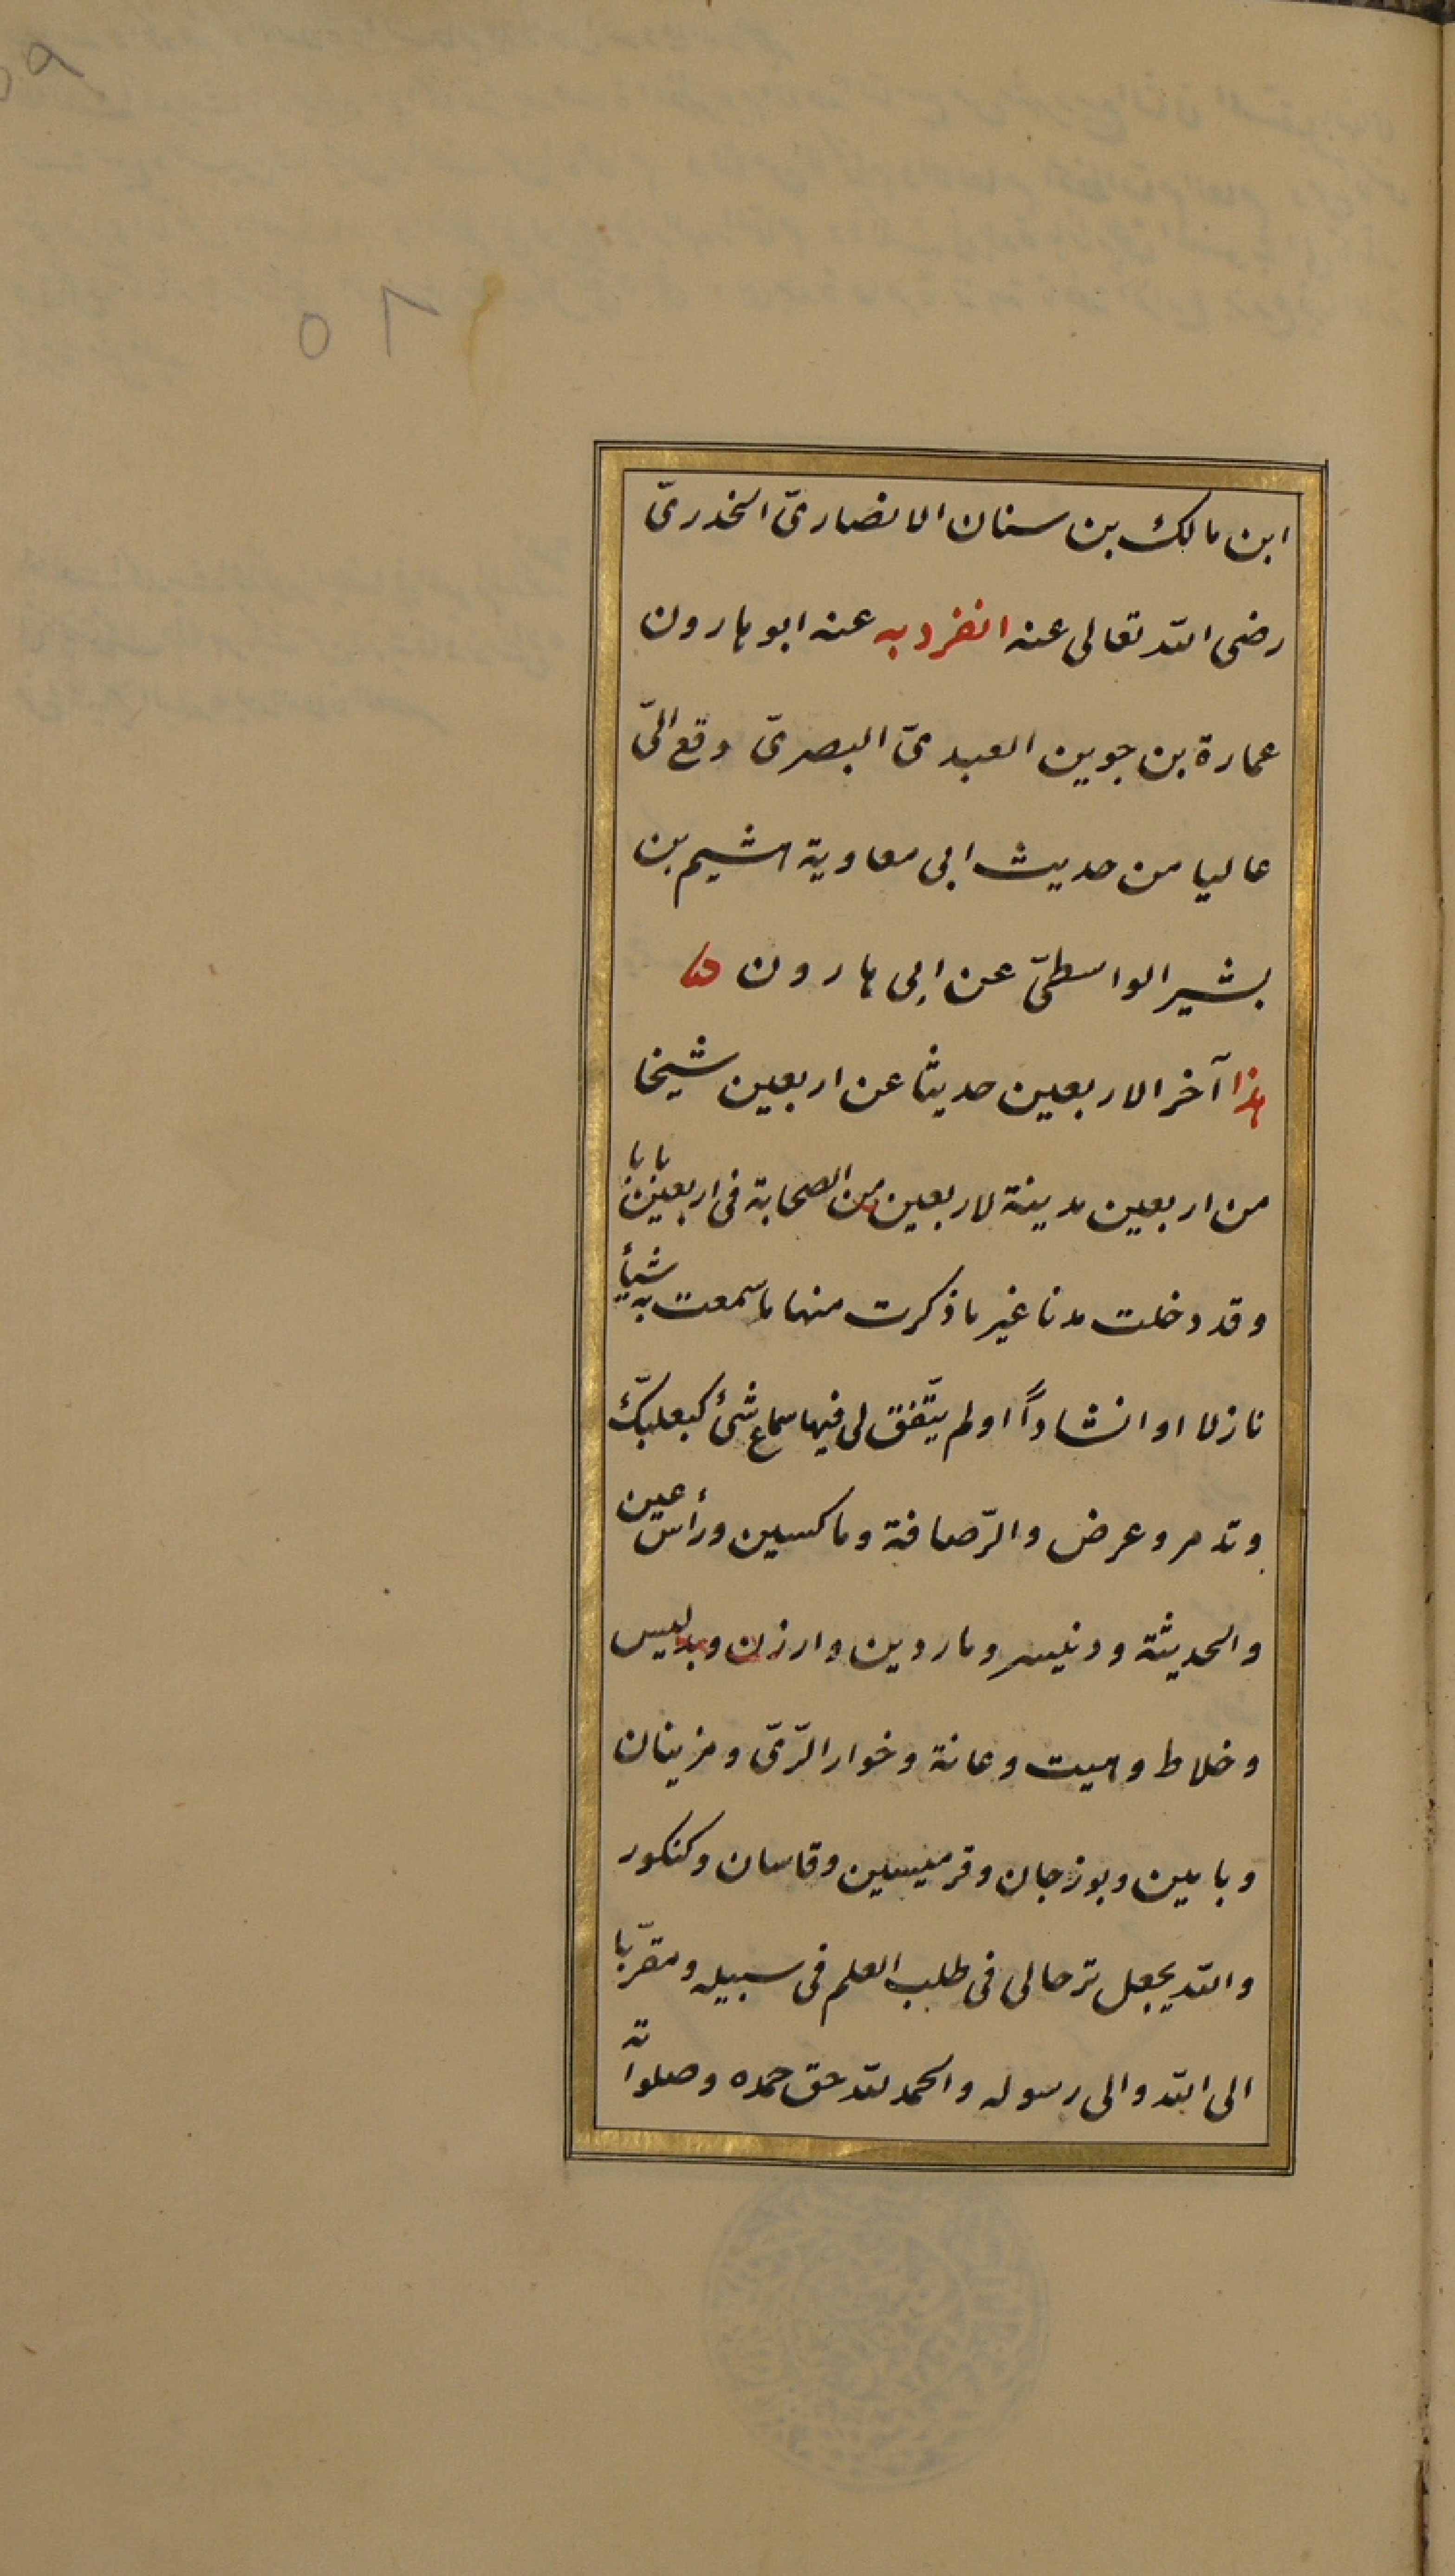 ابن مالك بن سنان الانصاريّ الخدريّ
رضى الله تعالى عنه انفرد به عنه ابو هارون
عمارة بن جوين العبديّ البصريّ وقع اليّ
عاليا من حديث ابى معاوية هشيم بن
بشير الواسطيّ عن ابى هارون
هذا آخر الاربعين حديثا عن اربعين شيخا
من اربعين مدينة لاربعين من الصحابة فى اربعين بابا
وقد دخلت مدنا غير ما ذكرت منها ما سمعت به شيأ
نازلا او انشاداً او لم يتّفق لى فيها سماع شئ كبعلبكّ
وتدمر وعرض والرّصافة وماكسين ورأس عين
والحديثة ودنيسر وماردين وارزن وبدليس
وخلاط وهيت وعانة وخوار الرّىّ ومزينان
وبامين وبوزجان وقرميسين وقاسان وكنكور
والله يجعل ترحالى فى طلب العلم فى سبيله ومقرّبا
الى الله والى رسوله والحمد لله حق حمده وصلواته